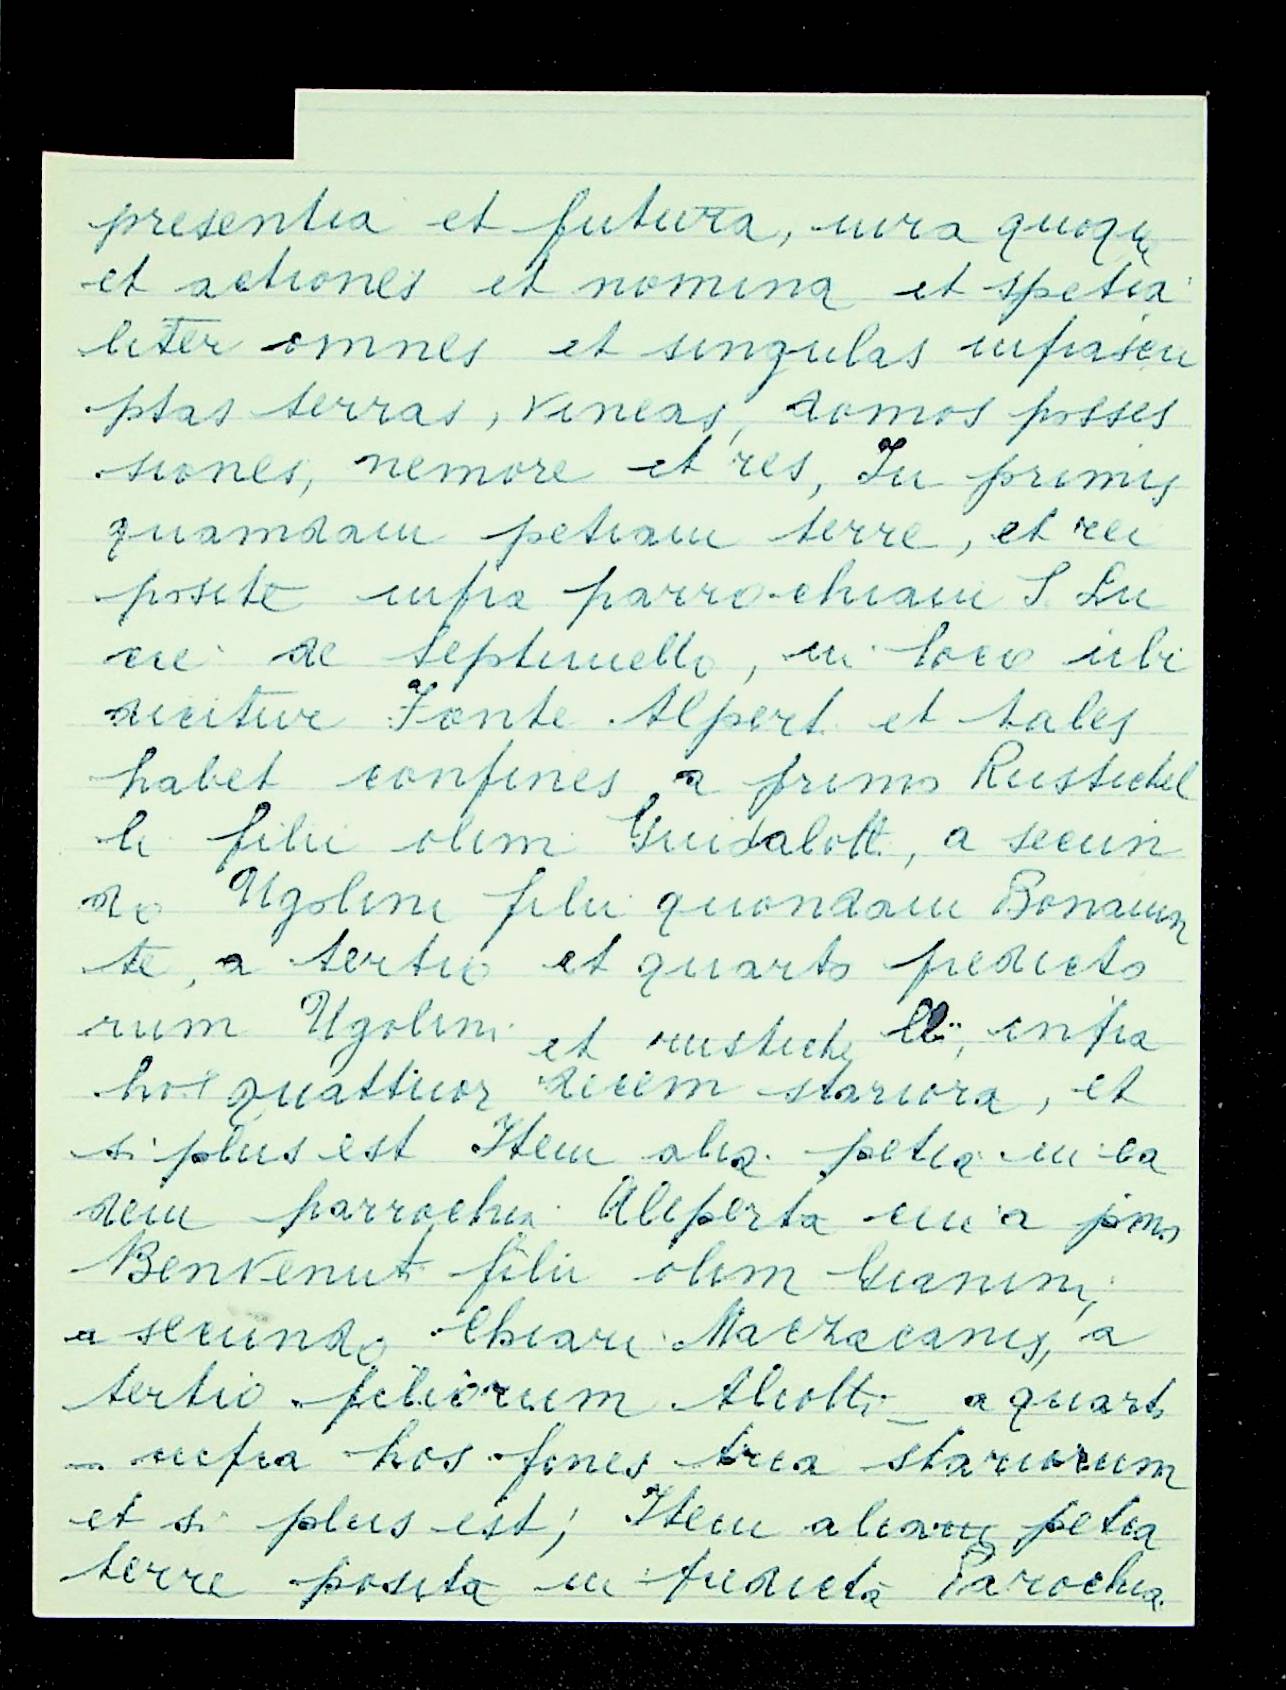 presentia et futura, iura quoque
et actiones et nomina et spetia
liter omnes et singulas infrascri
ptas terras, vineas, domos posses
siones, nemore et res, In primis
quamdam petiam terre, et rei
posite infra parrochiam S. Lu
cie de Septimello, in loco ubi
dicitur Fonte Alpert. et tales
habet confines a primo Rustichel
li filii olim Guidalott., a secun
do Ugolini filii quondam Bonaiun
te, a tertio et quarto predicto
rum Ugolini et rustiche lli, infra
hos quattuor decem stariora, et
si plus est Item alia petia in ea
dem parrochia Aliperta cui a pmo
Benvenuti filii olim Gianini,
a secundo Chiari Maczacanis, a
tertio filiorum Aliotti _ a quarto
_ infra hos fines tria stariorum
et si plus est; Item aliam petia
terre posita in predicta Parochia